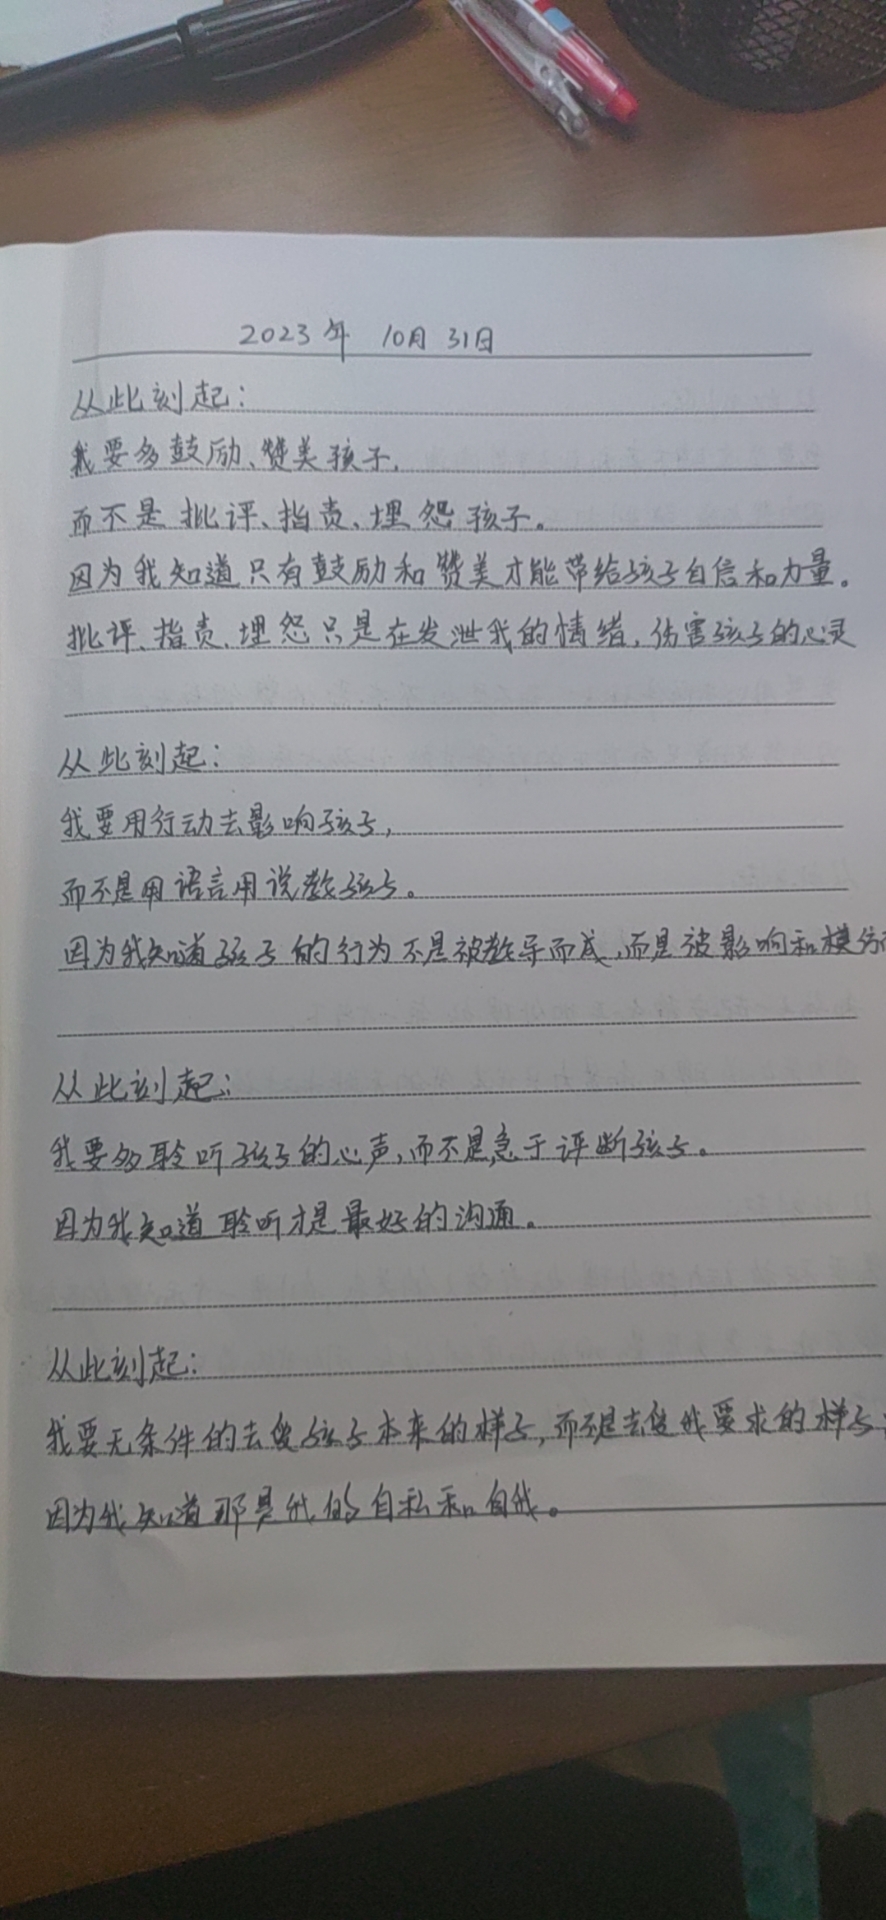 2023年 10月 31日
从此刻起:
我要多鼓励、赞美孩子,
而不是 批评、指责、埋怨 孩子。
因为我知道只有鼓励和赞美才能带给孩子自信和力量。
批评、指责、埋怨只是在发泄我的情绪,伤害孩子的心灵
从此刻起:
我要用行动去影响孩子,
而不是用语言用说教孩子。
因为我知道孩子的行为不是被教导而成,而是被影响和模仿而
从此刻起:
我要多聆听孩子的心声,而不是急于评断孩子。
因为我知道聆听才是最好的沟通。
从此刻起:
我要无条件的去爱孩子本来的样子,而不是去爱我要求的样子;
因为我知道那是我的自私和自我。